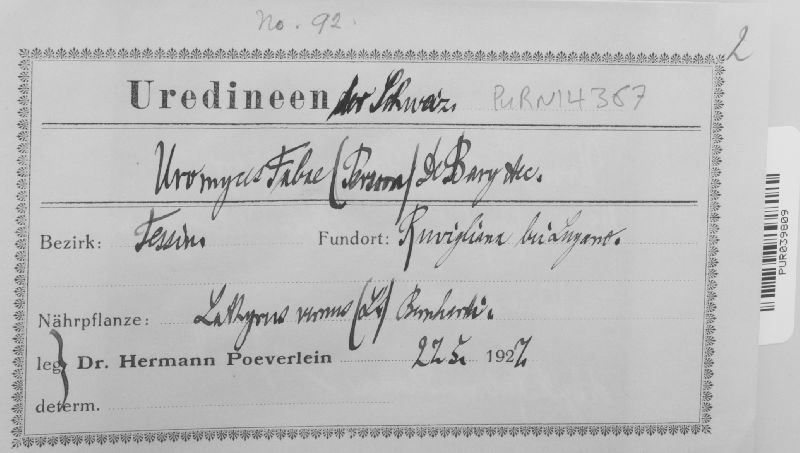 No. 92.
2
Uredineen der Schweiz. PURN14367
Uromyces Fabae (Persoon) De Bary etc.
Bezirk: Tessin. Fundort: Ruvigliana bei Lugano.
Nährpflanze: Lathyrus vernus (L.) Bernhardi.
leg. Dr. Hermann Poeverlein 22 5. 1927
determ.
PUR039809